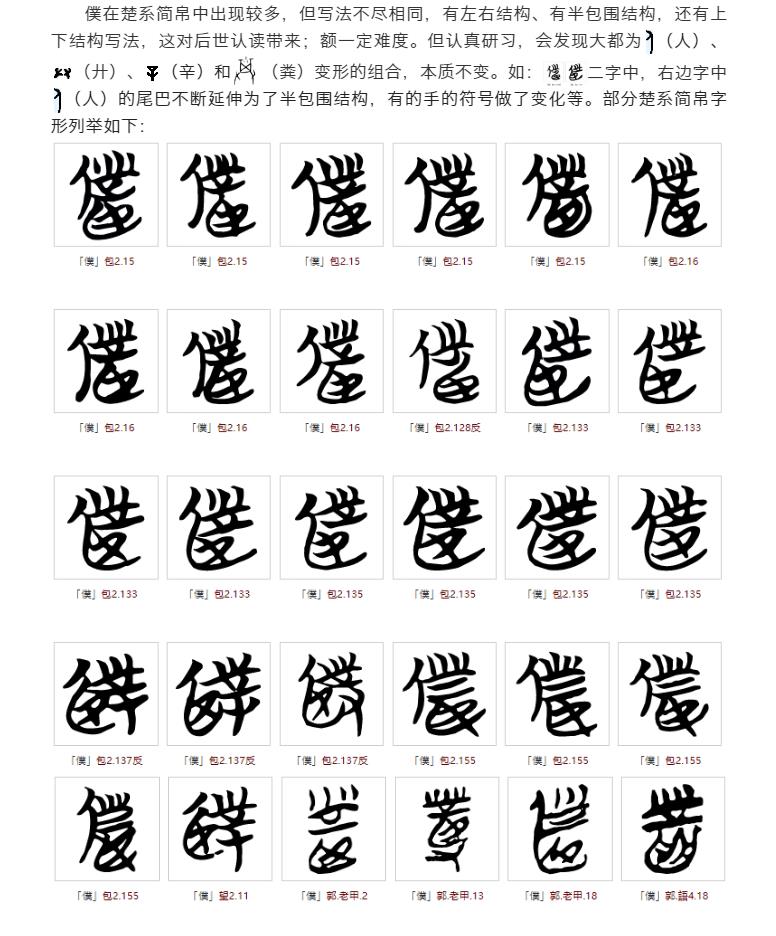 僕在楚系简帛中出现较多，但写法不尽相同，有左右结构、有半包围结构，还有上
下结构写法，这对后世认读带来；额一定难度。但认真研习，会发现大都为（人）、
（廾）、（辛）和（粪）变形的组合，本质不变。如：二字中，右边字中
（人）的尾巴不断延伸为了半包围结构，有的手的符号做了变化等。部分楚系简帛字
形列举如下：
「僕」包2.15 「僕」包2.15 「僕」包2.15 「僕」包2.15 「僕」包2.15 「僕」包2.16
「僕」包2.16 「僕」包2.16 「僕」包2.16 「僕」包2.128反 「僕」包2.133 「僕」包2.133
「僕」包2.133 「僕」包2.133 「僕」包2.135 「僕」包2.135 「僕」包2.135 「僕」包2.135
「僕」包2.137反 「僕」包2.137反 「僕」包2.137反 「僕」包2.155 「僕」包2.155 「僕」包2.155
「僕」包2.155 「僕」望2.11 「僕」郭.老甲.2 「僕」郭.老甲.13 「僕」郭.老甲.18 「僕」郭.語4.18